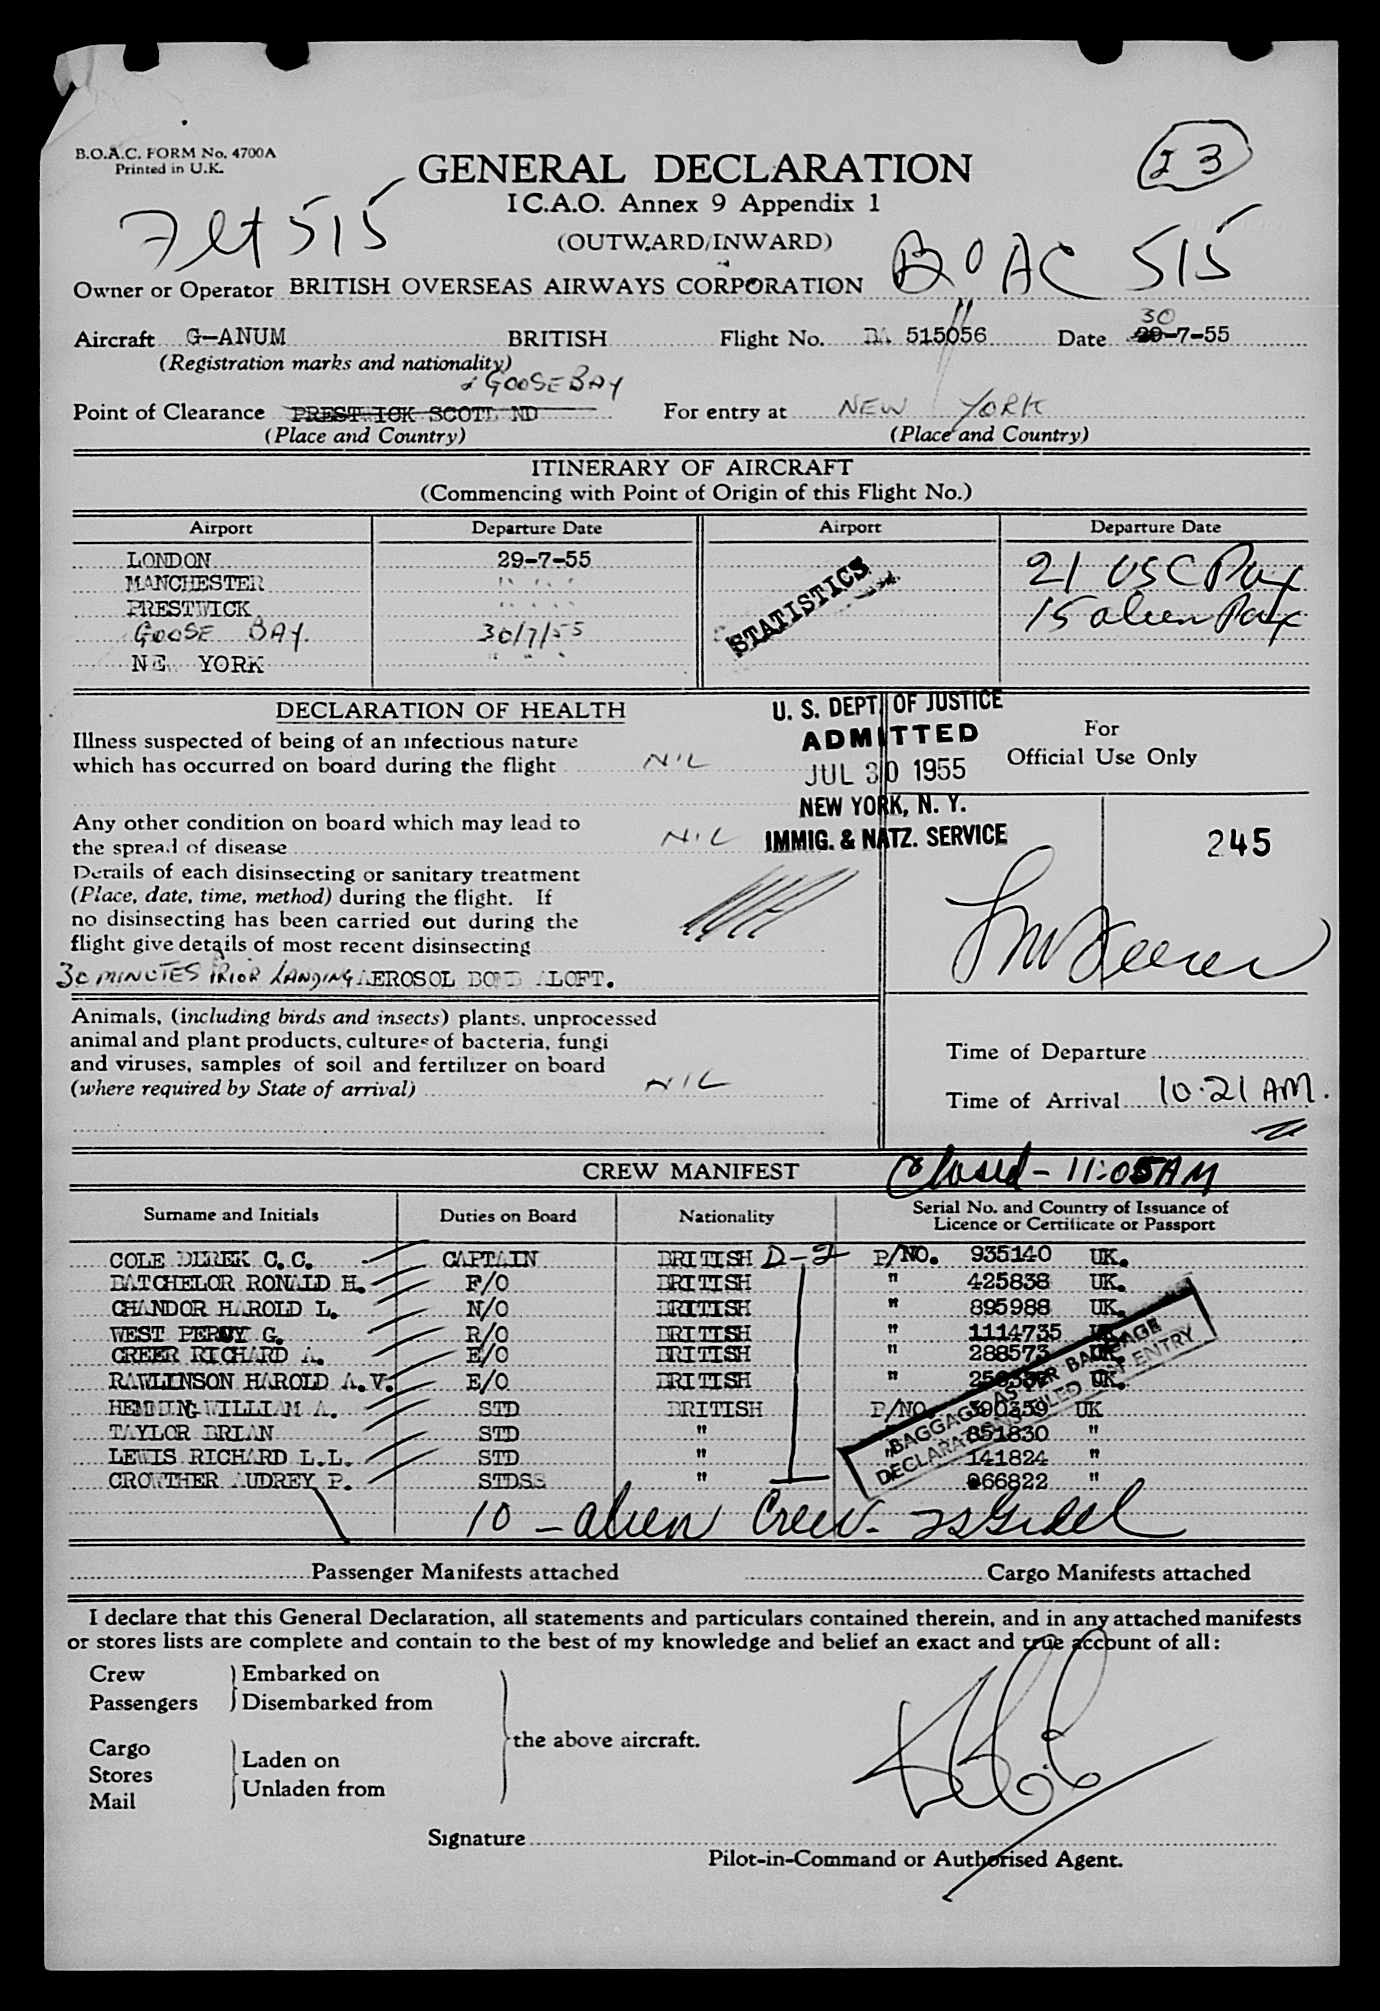 B.O.A.C. FORM No. 4700A
Printed in U.K.
23
GENERAL DECLARATION
I C.A.O. Annex 9 Appendix 1
(OUTWARD/INWARD)
Flt 515
BOAC 515
Owner or Operator BRITISH OVERSEAS AIRWAYS CORPORATION
30
Aircraft G-ANUM BRITISH Flight No. BA 515056 Date 29-7-55
(Registration marks and nationality)
GOOSE BAY
Point of Clearance PRESTWICK SCOTLAND For entry at NEW YORK
(Place and Country) (Place and Country)
ITINERARY OF AIRCRAFT
(Commencing with Point of Origin of this Flight No.)
Airport Departure Date Airport Departure Date
LONDON 29-7-55 21 USC Pax
MANCHESTER " " " "
PRESTWICK " " " " 15 alien Pax
GOOSE BAY. 30/7/55
NEW YORK " " "
STATISTICS
DECLARATION OF HEALTH
Illness suspected of being of an infectious nature
which has occurred on board during the flight NIL
Any other condition on board which may lead to
the spread of disease NIL
Details of each disinsecting or sanitary treatment
(Place, date, time, method) during the flight. If
no disinsecting has been carried out during the
flight give details of most recent disinsecting
30 MINUTES PRIOR LANDING AEROSOL BOMB ALOFT.
Animals, (including birds and insects) plants, unprocessed
animal and plant products, cultures of bacteria, fungi
and viruses, samples of soil and fertilizer on board
(where required by State of arrival) NIL
U. S. DEPT. OF JUSTICE
ADMITTED
JUL 30 1955
NEW YORK, N. Y.
IMMIG. & NATZ. SERVICE
For
Official Use Only
245
Time of Departure
Time of Arrival 10.21 AM.
CREW MANIFEST Closed - 11:05 AM
Surname and Initials Duties on Board Nationality Serial No. and Country of Issuance of
Licence or Certificate or Passport
COLE DEREK C.C. CAPTAIN BRITISH D-2 P/NO. 935140 UK.
BATCHELOR RONALD H. F/O BRITISH " 425838 UK.
CHANDOR HAROLD L. N/O BRITISH " 895988 UK.
WEST PERCY G. R/O BRITISH " 1114735 UK.
GREER RICHARD A. E/O BRITISH " 288573 UK.
RAWLINSON HAROLD A.V. E/O BRITISH " UK.
HEMMING WILLIAM A. STD BRITISH P/NO. 390359 UK
TAYLOR BRIAN STD " 851830 "
LEWIS RICHARD L.L. STD " 141824 "
CROWTHER AUDREY P. STDSS " 066822 "
BAGGAGE AS PER BAGGAGE
DECLARATIONS FILED ENTRY
10 - alien Crew.
Passenger Manifests attached Cargo Manifests attached
I declare that this General Declaration, all statements and particulars contained therein, and in any attached manifests
or stores lists are complete and contain to the best of my knowledge and belief an exact and true account of all:
Crew Embarked on
Passengers Disembarked from
the above aircraft.
Cargo Laden on
Stores
Mail Unladen from
Signature
Pilot-in-Command or Authorised Agent.